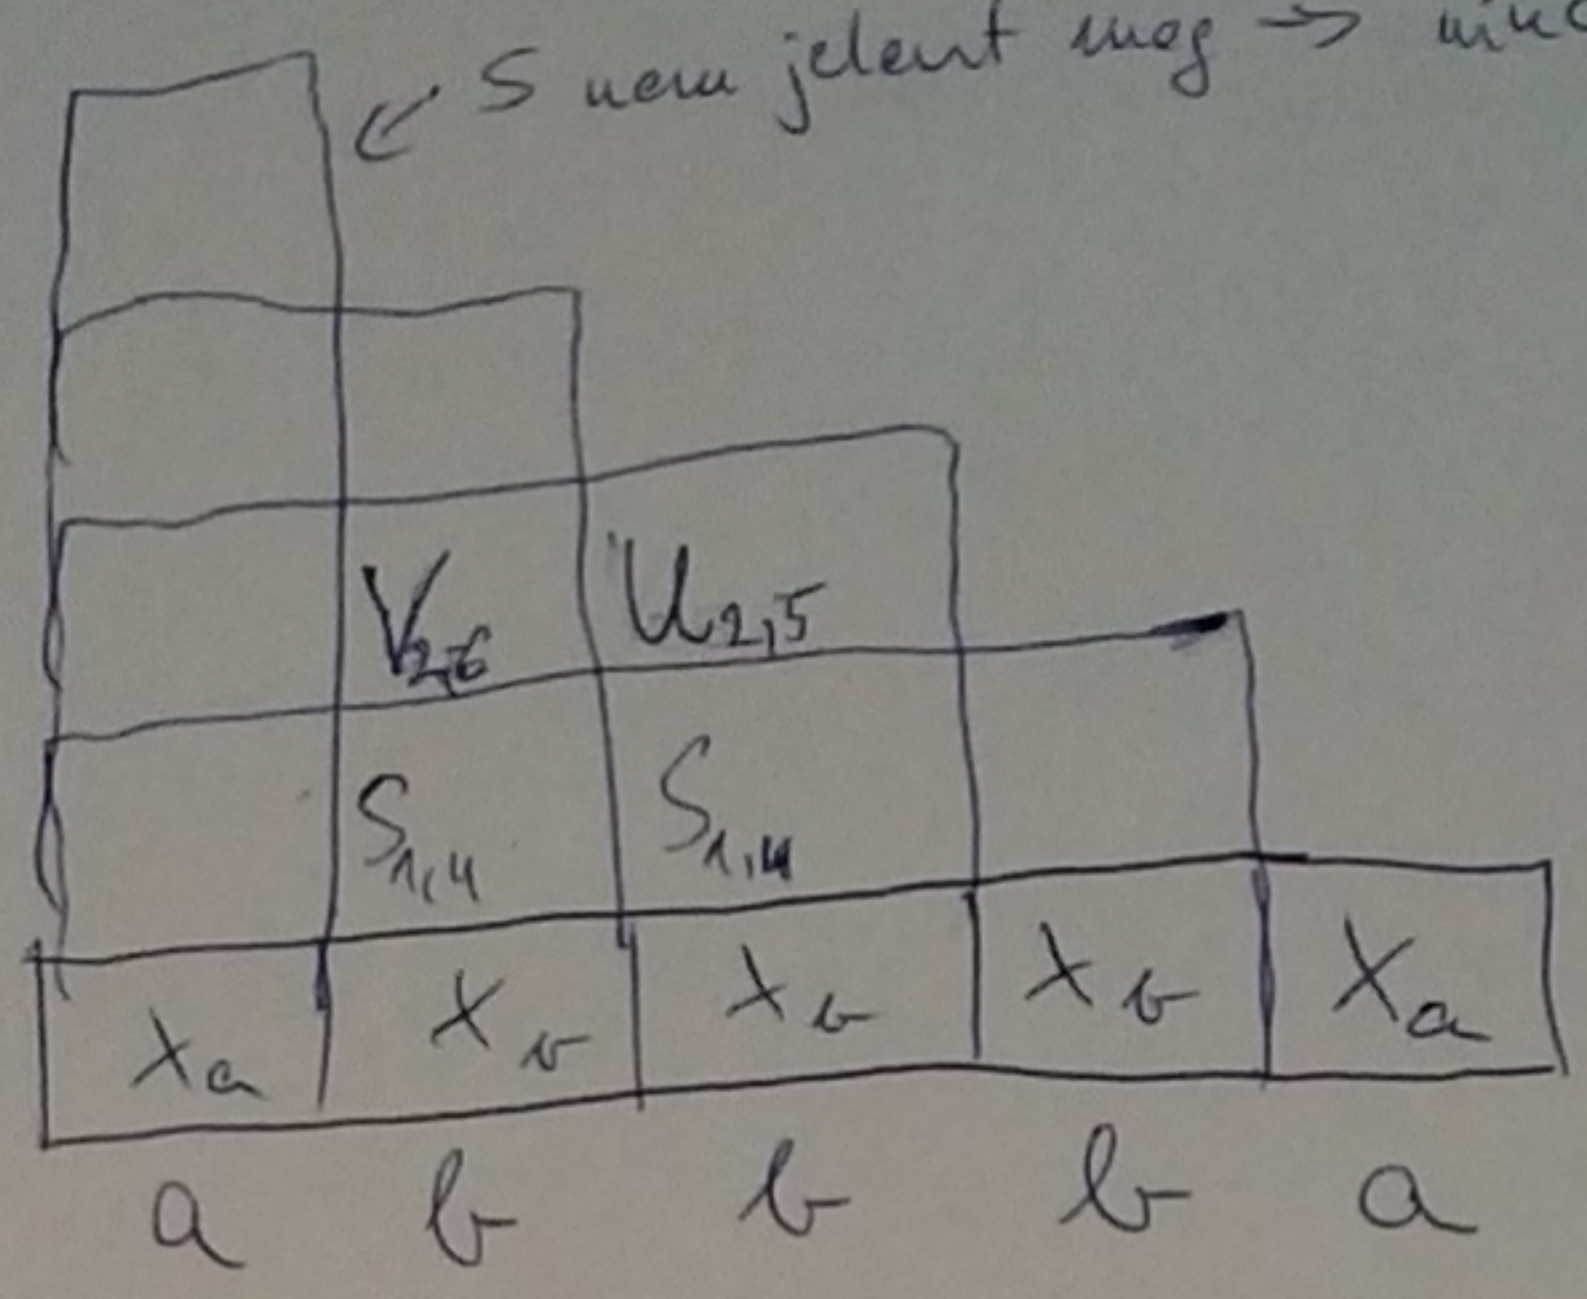 S nem jelent meg →
V2,6 U2,5
S1,4 S1,4
Xa Xb Xb Xb Xa
a b b b a